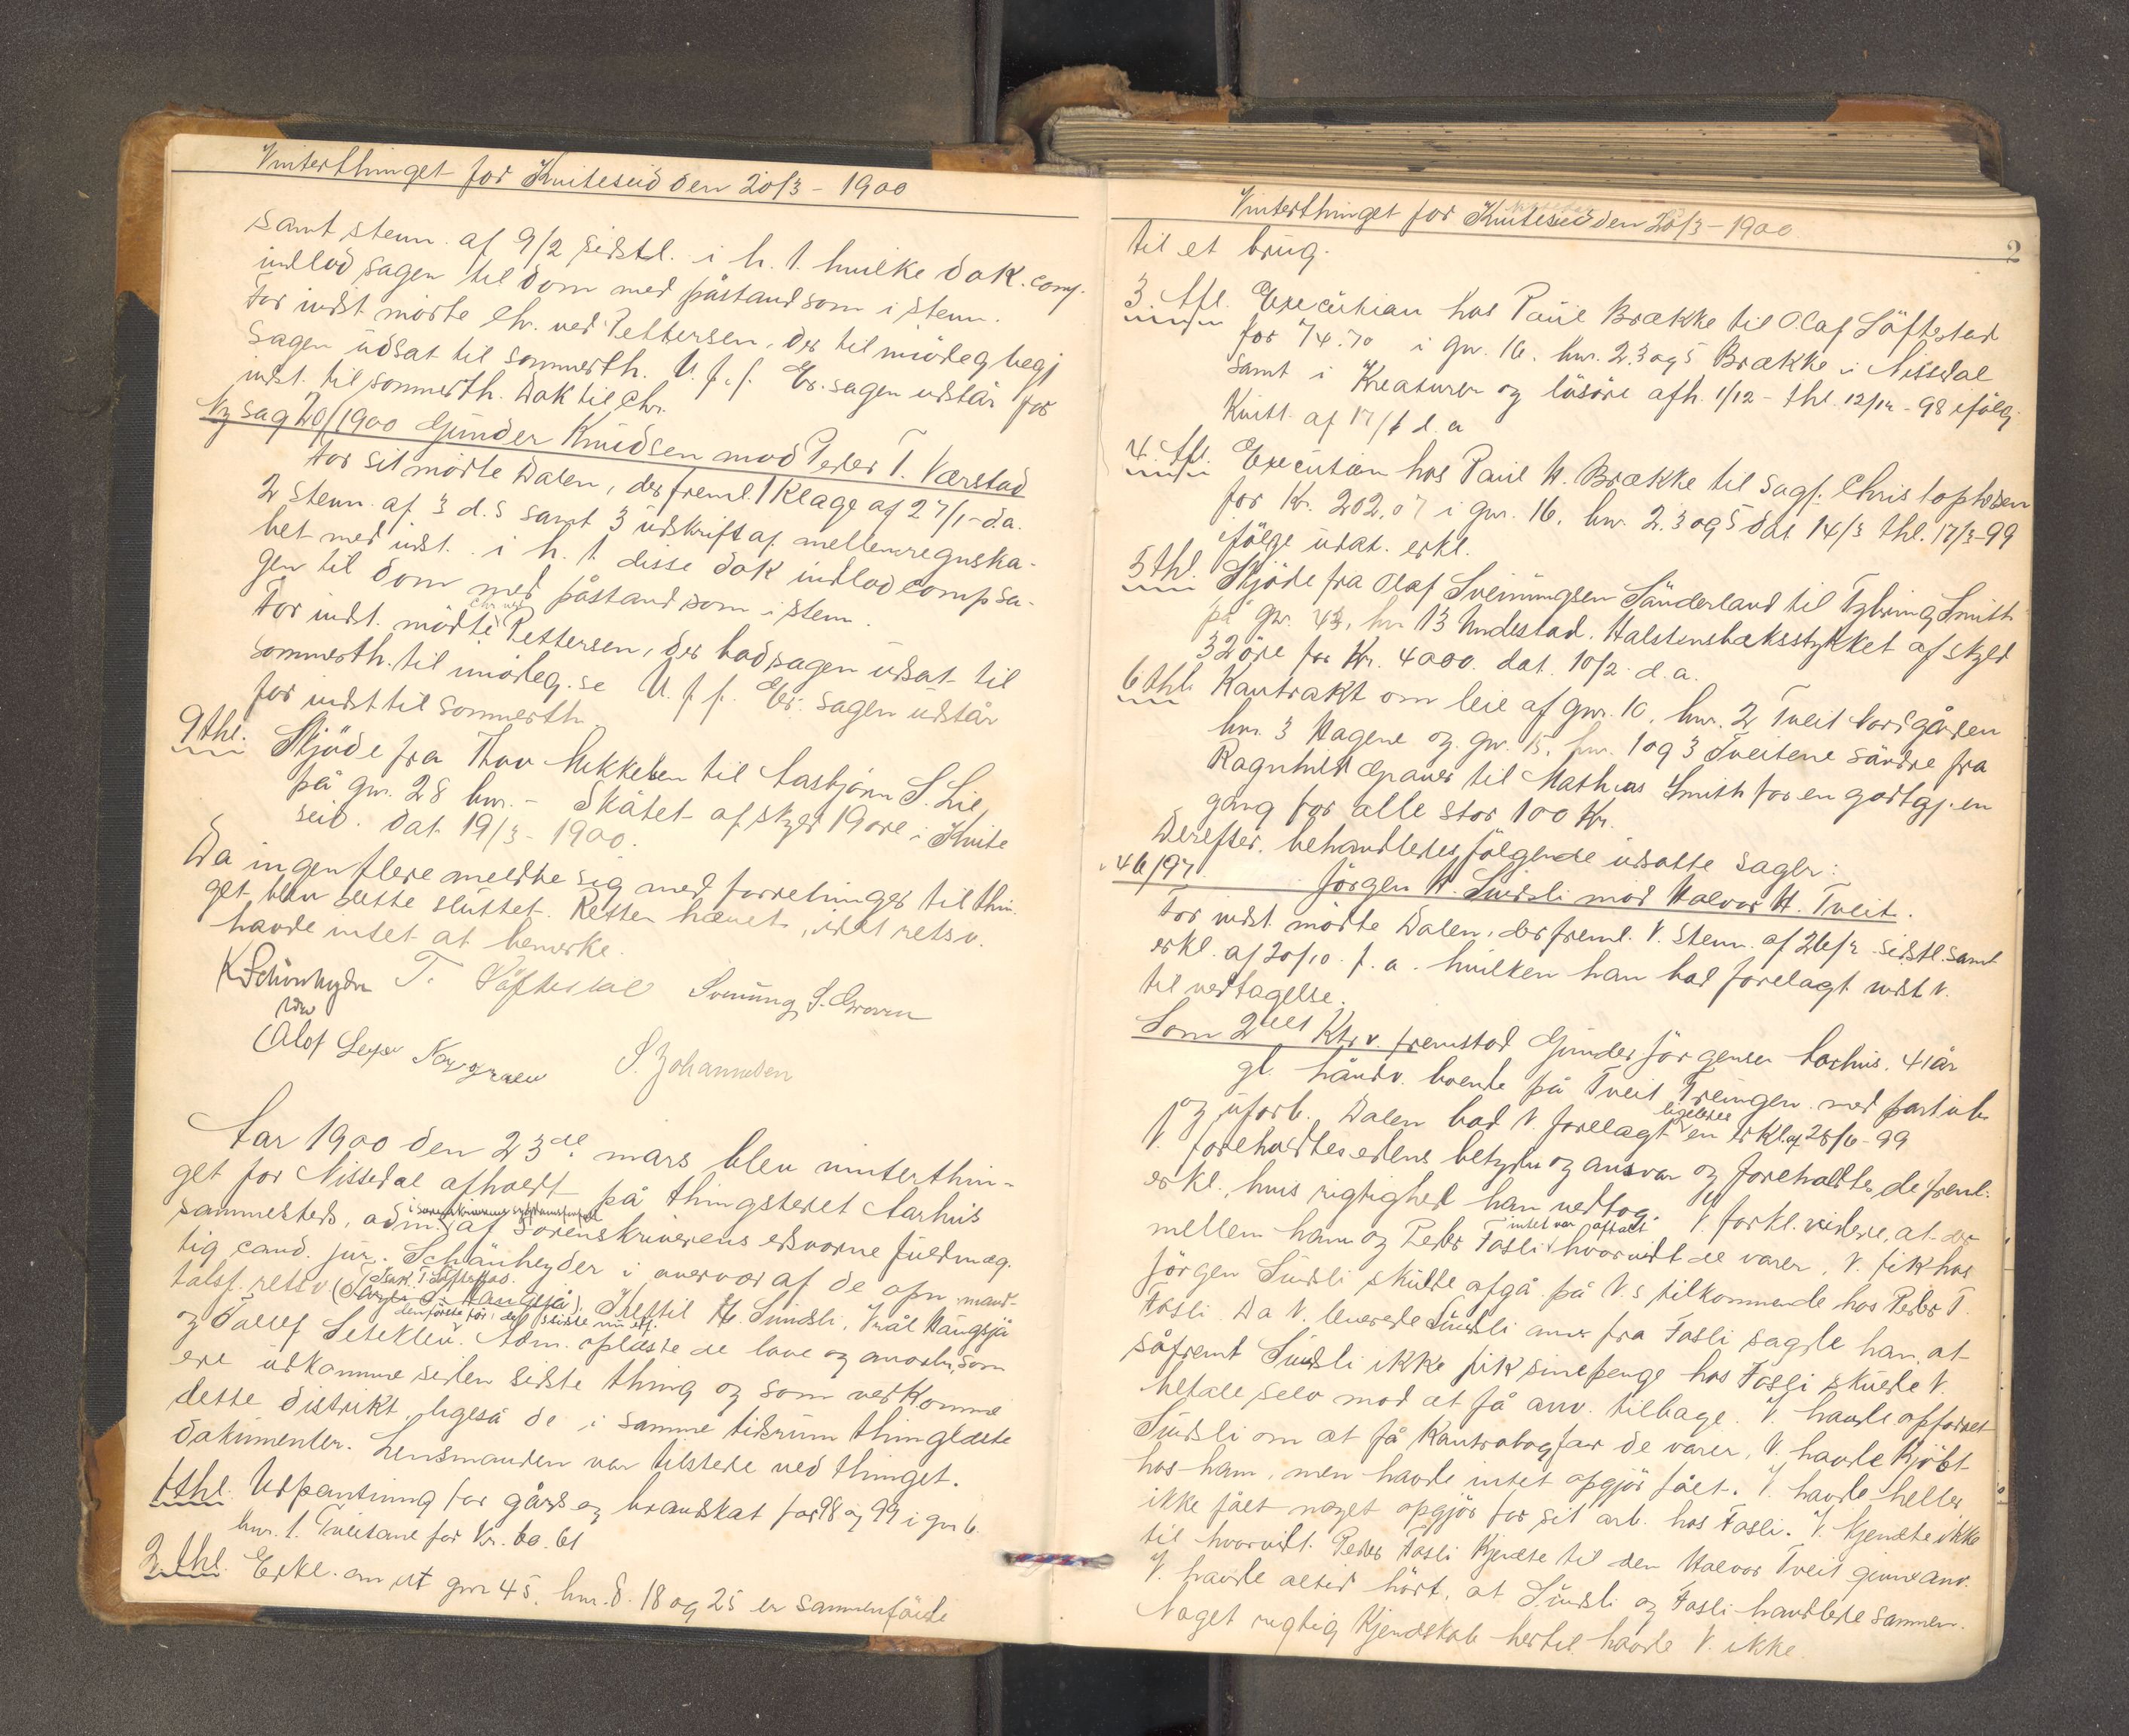 Vinterthinget for Kviteseid den 20/3 - 1900
samt stevn. af 9/2 sidstl. i h. t. hvilke dok. comp.
indlod sagen til dom med påstand som i stevn.
For indst. mödte Chr. ved Pettersen, der til imödeg. begj
sagen udsat til sommerth. U. f. f. Er. sagen udstår for
indst. til sommerth. Dok til Chr.
Ny sag 20/1900 Gunder Knudsen mod Peder T. Værstad
For sit mödte Dalen, der freml. 1 Klage af 27/1 - da.
2 stevn. af 3 d. s samt 3 udskrift af mellemregnska-
bet med indst. i h. t. disse dok indlod comp sa-
gen til dom med påstand som i stevn.
For indst. mödte Chr. ved Pettersen, der bad sagen udsat til
sommerth. til imödeg. se U. f. f. Er. sagen udstår
for indst til sommerth.
9 thl. Skjöde fra Thov Mikkelsen til Aasbjörn S. Lie,
på gnr. 28 bnr. - Skåtet af skyld 19 öre i Kvite
seid. dat 19/3 - 1900.
Da ingen flere meldte sig med forretninger til thin-
get blev dette sluttet. Retten hævet, idet retsv.
havde intet at bemerke.
K Schönheyder T. Söftestad Sveinung S. Groven
Olof S. Johannesen
Aar 1900 den 23de mars blev vinterthin-
get for Nissedal afholdt på thingstedet Aarhus
sammesteds, adm. af Sorenskriverens edsvorne fuldmæg-
tig cand. jur. Schönheyder i overvær af de opn. mand-
talsf. retsv (Isak T. Söftestad), Kjettil H. Sundsli, Knål Haugsjå
og Tallef Seteklev. den förste för, de sidste nu edf. Adm. oplæste de love og anordn., som
ere udkomne siden sidste thing og som vedkomme
dette distrikt, ligeså de i samme tidsrum thinglæste
dokumenter. Lensmanden var tilstede ved thinget.
1 thl. Udpantning for gårds og brandskat for 98 og 99 i gnr 6.
bnr. 1. Tveitane for Kr. 60.61
2 thl. Erkl. om at gnr 45, bnr. 8. 18 og 25 er sammenföiede
Vinterthinget for Kviteseid den 20/3 - 1900
2
til et brug.
3. thl. Execution hos Paul Brække til Olaf Söftestad
for 74.70 i gnr. 16. bnr. 2. 3 og 5 Brække i Nissedal
samt i Kreaturer og lösöre afh. 1/12 - thl. 12/12 - 98 ifölg.
Kvitt. af 17/1 d. a
4. thl. Execution hos Paul H. Brække til sagf. Christophersen
for Kr. 202,07 i gnr. 16, bnr. 2. 3 og 5 dat 14/3 thl. 17/3 - 99
ifölge udat. erkl.
5 thl. Skjöde fra Olaf Sveinungsen Sönderland til Tybring Smith
på gnr. 43, bnr 13 Undestad. Halstensbæksstykket af skyld
32 öre for Kr. 4000. dat. 10/2. d. a.
6 thl. Kontrakt om leie af gnr. 10, bnr. 2 Tveit Nordgården
bnr. 3 Hagene og gnr. 15, bnr. 1 og 3 Tveitene söndre fra
Ragnhild til Mathias Smith for en godtgj. en
gang for alle stor 100 Kr.
Derefter behandledes fölgende udsatte sager:
46/97. Jörgen H. Sundsli mod Halvor H. Tveit.
For indst. mödte Dalen, der freml. V. stevn. af 26/2 sidstl. samt
erkl. af 20/10 f. a. hvilken han bad forelagt indst V.
til vedtagelse.
Som 2det Ktrv. fremstod Gunder Jörgensen Aarhus. 41 år
gl. håndv. boende på Tveit Treungen med part ube
og uforb. Dalen bad V. forelagt ligeledes en erkl. af 28/6 - 99
V. foreholdtes edens betydn og ansvar og foreholdtes de freml.
erkl., hvis rigtighed han vedtog. V. forkl. videre, at der
mellem ham og Peder Fosli intet var aftalt hvorvidt de varer, V. fik hos
Jörgen Sundsli skulde afgå på V.s tilkommende hos Peder T.
Fosli. Da V. leverede Sundsli anv fra Fosli sagde han, at
såfremt Sundsli ikke fik sine penge hos Fosli skulde V.
betale selv mod at få anv. tilbage. V. havde opfordret
Sundsli om at få Kontrabog for de varer, V. havde kjöbt
hos ham, men havde intet opgjör fået. V. havde heller
ikke fået noget opgjör for sit arb. hos Fosli. V. kjendte ikke
til hvorvidt Peder Fosli kjendte til den Halvor Tveit givne anv.
V. havde altid hört, at Sundsli og Fosli handlede sammen.
Noget rigtig Kjendskab hertil havde V. ikke.